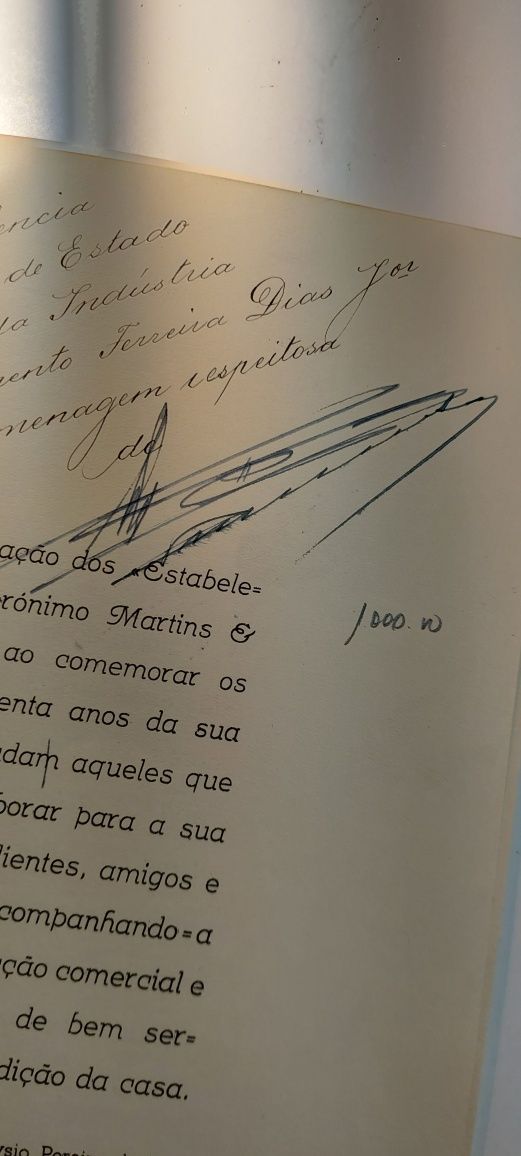 ência
de Estado
da Indústria
ento Ferreira Dias Jor
menagem respeitosa
de
ação dos «Estabele=
erónimo Martins &
ao comemorar os
enta anos da sua
údam aqueles que
borar para a sua
lientes, amigos e
companhando=a
ção comercial e
de bem ser=
dição da casa.
1.000.00